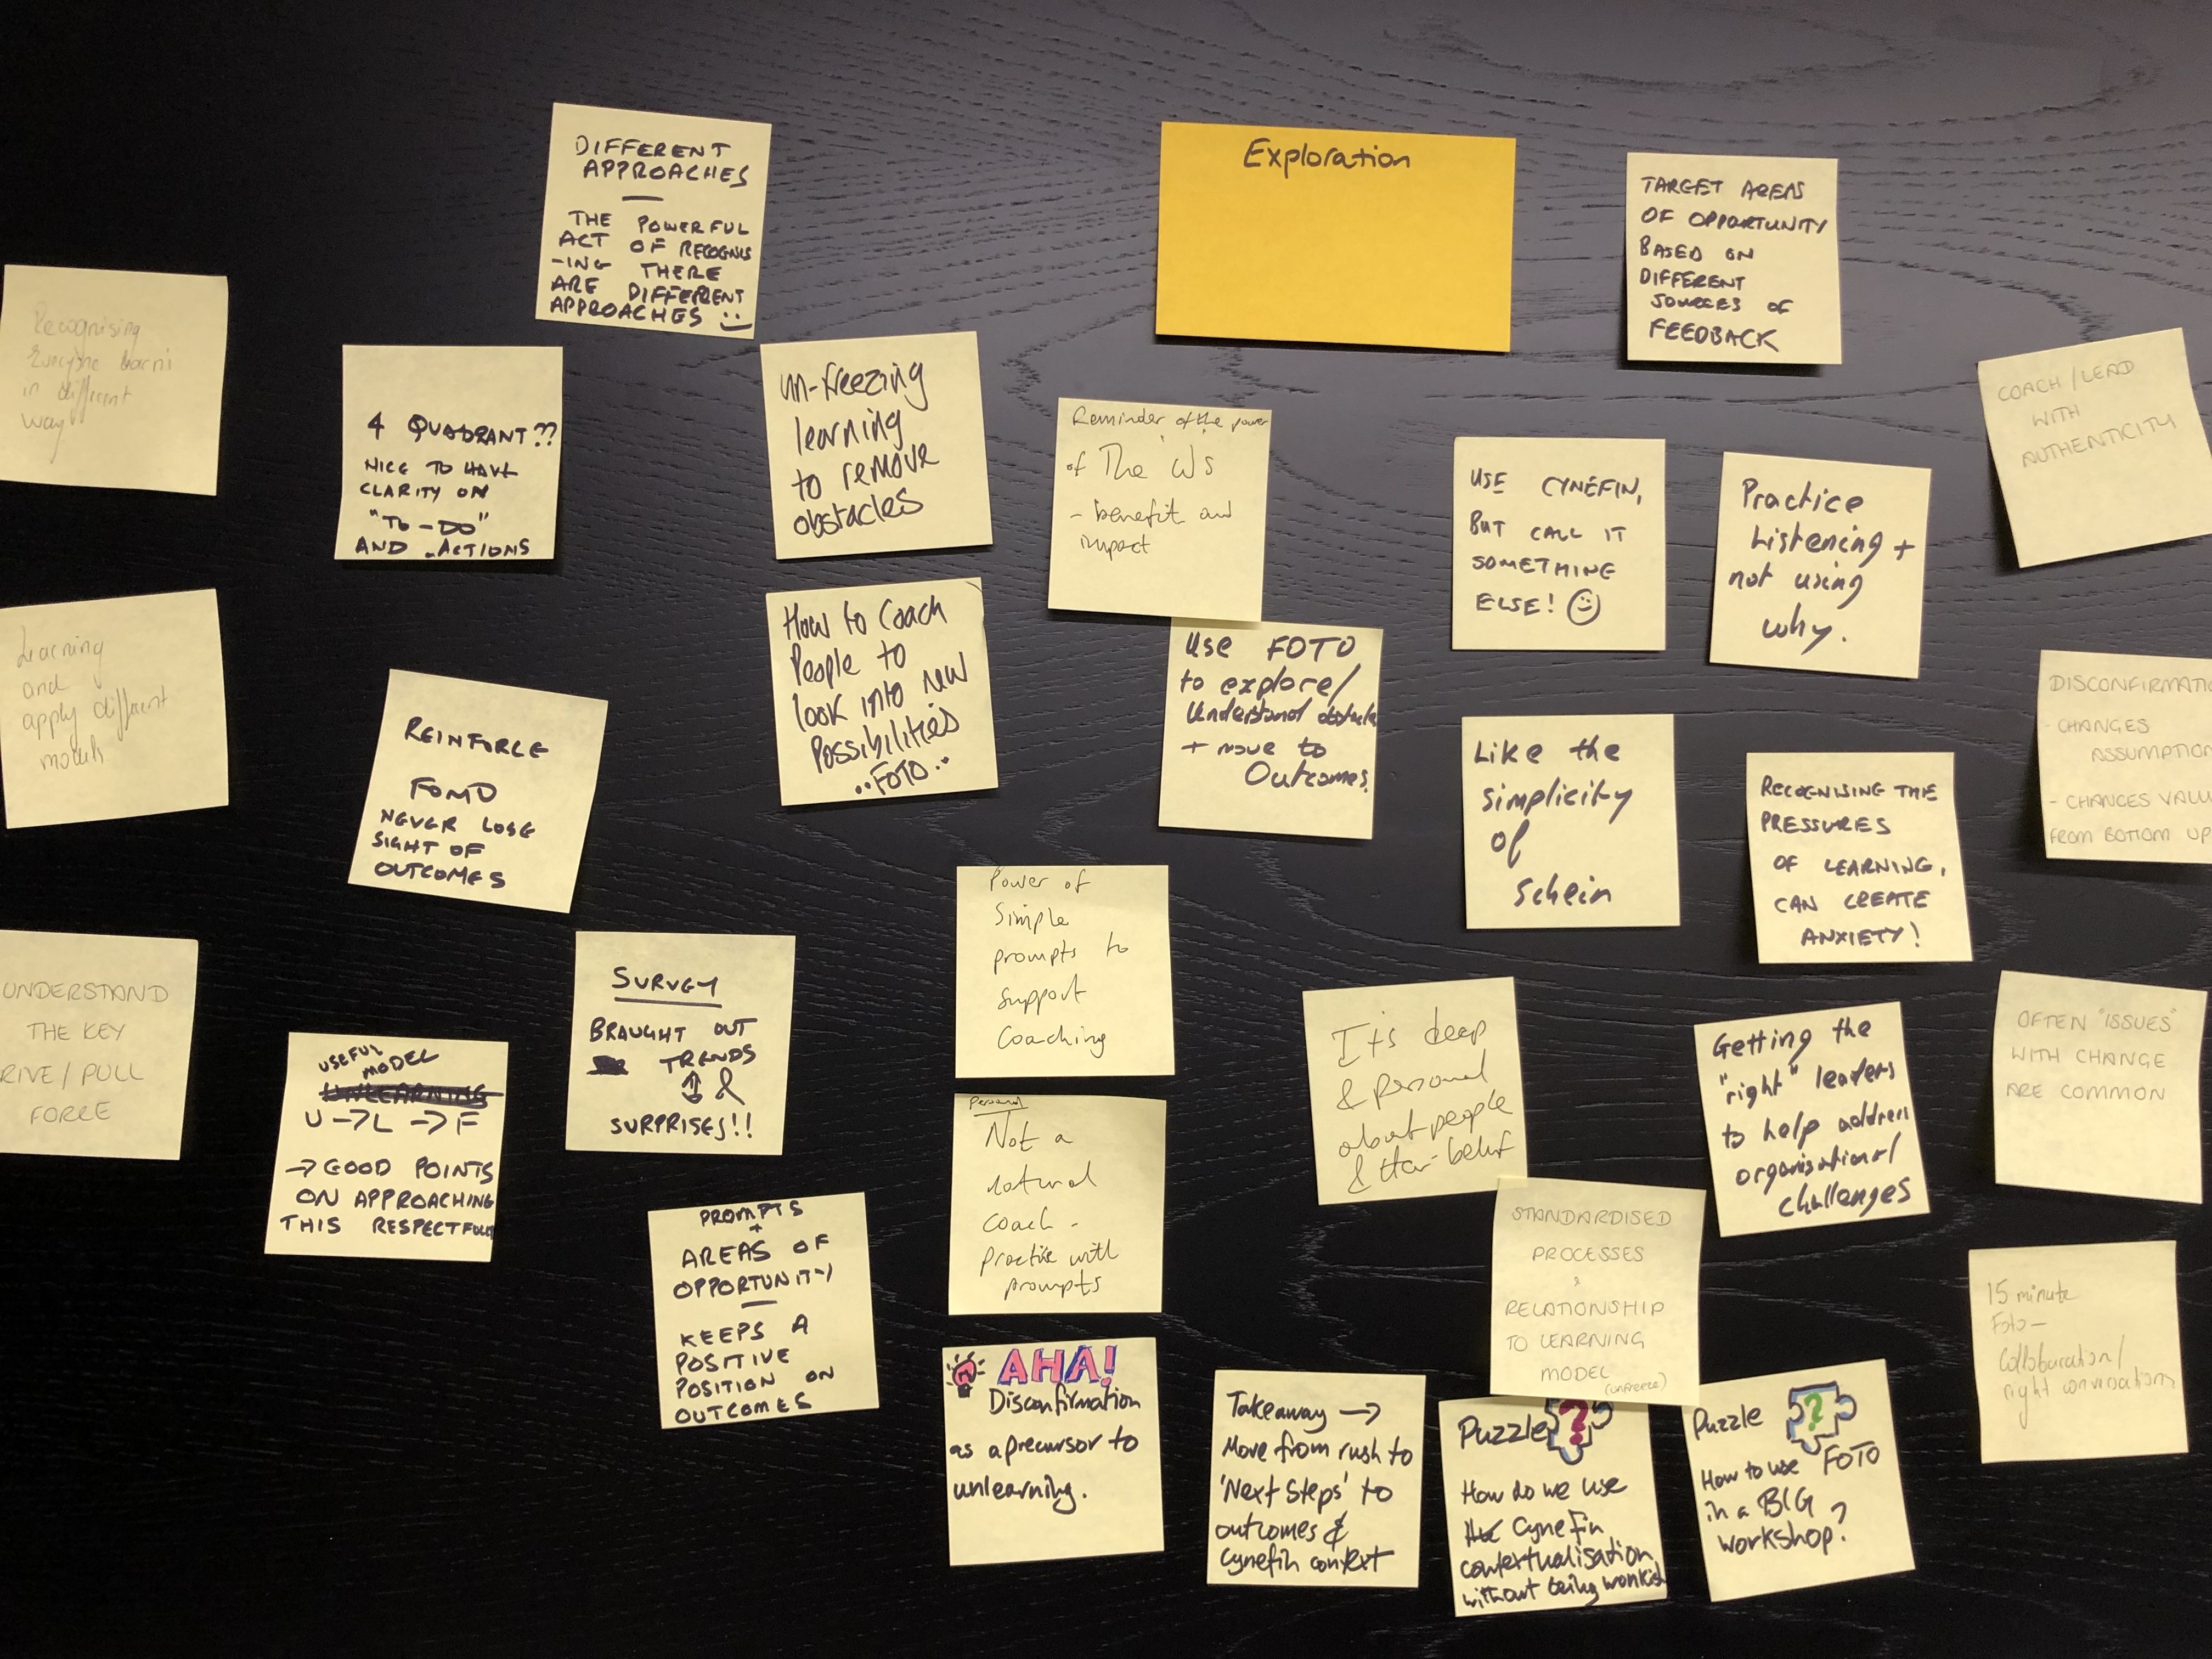 Exploration
DIFFERENT
APPROACHES
THE POWERFUL
ACT OF RECOGNIS
-ING THERE
ARE DIFFERENT
APPROACHES
TARGET AREAS
OF OPPORTUNITY
BASED ON
DIFFERENT
SOURCES OF
FEEDBACK
Recognising
Everyone
in different
way
4 QUADRANT??
NICE TO HAVE
CLARITY ON
"TO-DO"
AND ACTIONS
un-freezing
learning
to remove
obstacles
Reminder of the power
of The W's
- benefit and
impact
USE CYNEFIN,
BUT CALL IT
SOMETHING
ELSE!
Practice
Listening +
not using
why.
COACH/LEAD
WITH
AUTHENTICITY
Learning
and
apply different
models
REINFORCE
FOMO
NEVER LOSE
SIGHT OF
OUTCOMES
How to Coach
People to
look into new
Possibilities
..FOTO..
Use FOTO
to explore/
Understand obstacle
+ move to
Outcomes.
Like the
simplicity
of
Schein
RECOGNISING THE
PRESSURES
OF LEARNING,
CAN CREATE
ANXIETY!
DISCONFIRMATIO
- CHANGES
ASSUMPTION
- CHANGES VALU
FROM BOTTOM UP
UNDERSTAND
THE KEY
RIVE/PULL
FORCE
USEFUL
MODEL
UNLEARNING
U→L→F
→ GOOD POINTS
ON APPROACHING
THIS RESPECTFULLY
SURVEY
BRAUGHT OUT
TRENDS
&
SURPRISES!!
PROMPTS
+
AREAS OF
OPPORTUNITY
KEEPS A
POSITIVE
POSITION ON
OUTCOMES
Power of
Simple
prompts to
support
Coaching
Personal
Not a
natural
coach -
Practise with
prompts
AHA!
Disconfirmation
as a precursor to
unlearning.
It's deep
& personal
about people
& their belief
Getting the
"right" leaders
to help address
organisational
challenges
OFTEN "ISSUES"
WITH CHANGE
ARE COMMON
STANDARDISED
PROCESSES
&
RELATIONSHIP
TO LEARNING
MODEL
(UNFREEZE)
15 minute
Foto -
Collaboration/
right conversations
Takeaway →
Move from rush to
'Next Steps' to
outcomes &
Cynefin context
Puzzle ?
How do we use
the Cynefin
contextualisation
without being wonkish
Puzzle ?
How to use FOTO
in a BIG
workshop?